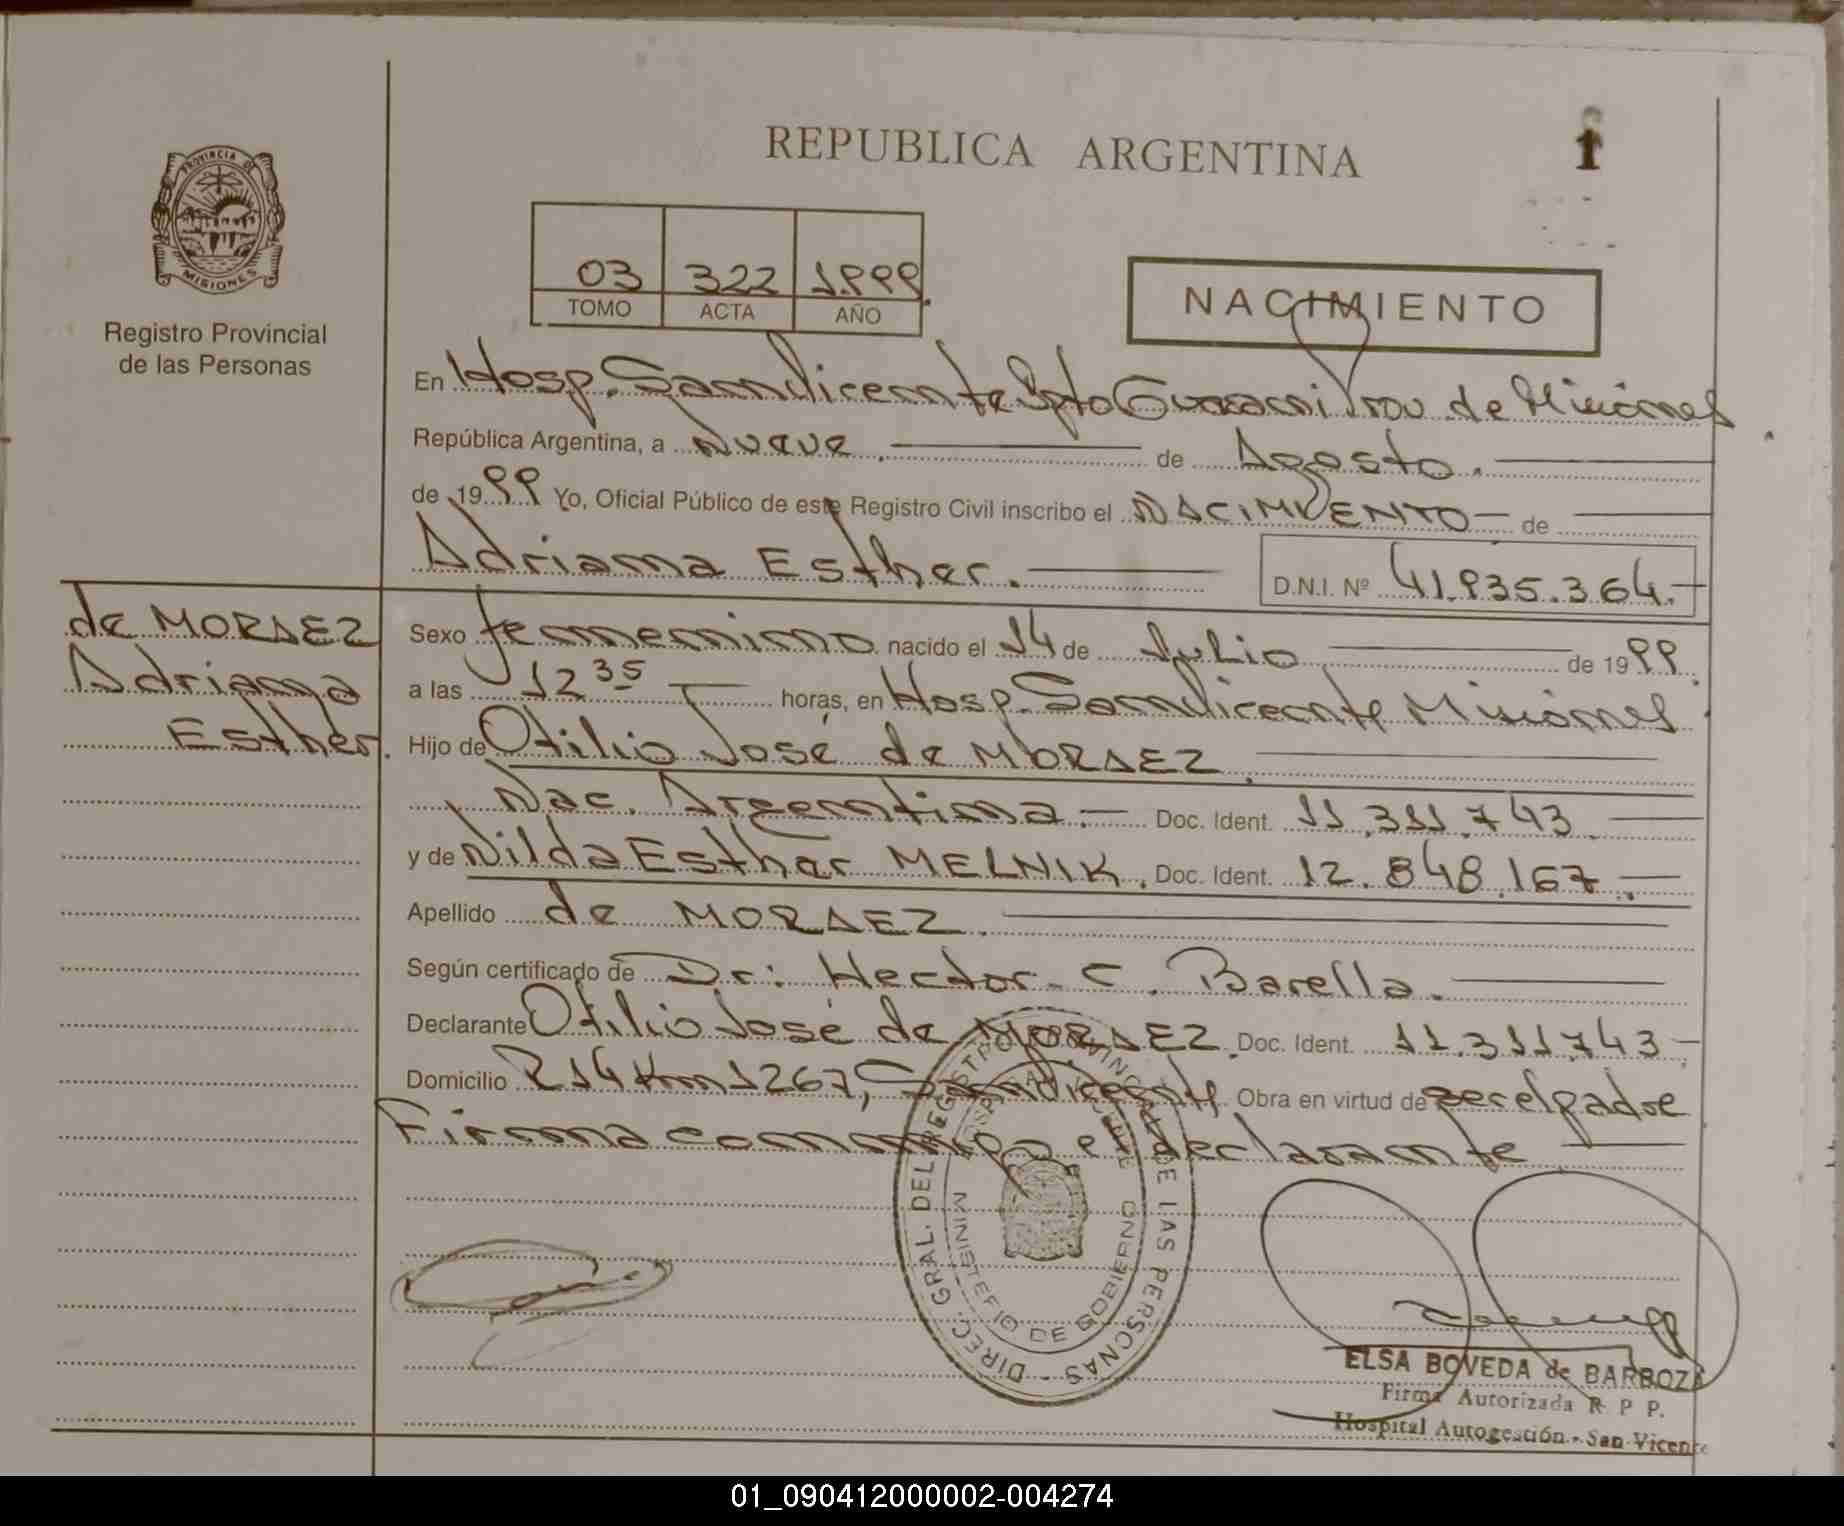 PROVINCIA DE
MISIONES
Registro Provincial
de las Personas
REPUBLICA ARGENTINA
03 322 1.999.
TOMO ACTA AÑO
NACIMIENTO
En Hosp. San Vicente Dpto Guarani Prov de Misiones
República Argentina, a Nueve. de Agosto.
de 1999 Yo, Oficial Público de este Registro Civil inscribo el NACIMIENTO de
Adriana Esther. D.N.I. Nº 41.935.364.-
de MORAEZ
Adriana
Esther.
Sexo femenino nacido el 14 de Julio de 1999
a las 12 35 horas, en Hosp. San Vicente Misiones
Hijo de Otilio José de MORAEZ.
Nac. Argentina.- Doc. Ident. 11.311.743.
y de Nilda Esther MELNIK. Doc. Ident. 12.848.167.-
Apellido de MORAEZ.
Según certificado de Dr: Hector C. Barella.
Declarante Otilio José de MORAEZ. Doc. Ident. 11.311.743-
Domicilio R14 Km 1267, San Vicente Obra en virtud de ser el padre
Firma conmigo el declarante
DIREC. GRAL. DEL REGISTRO PROVINCIAL DE LAS PERSONAS -
MINISTERIO DE GOBIERNO
ELSA BOVEDA de BARBOZA
Firma Autorizada R P P.
Hospital Autogestión - San Vicente
01_090412000002-004274